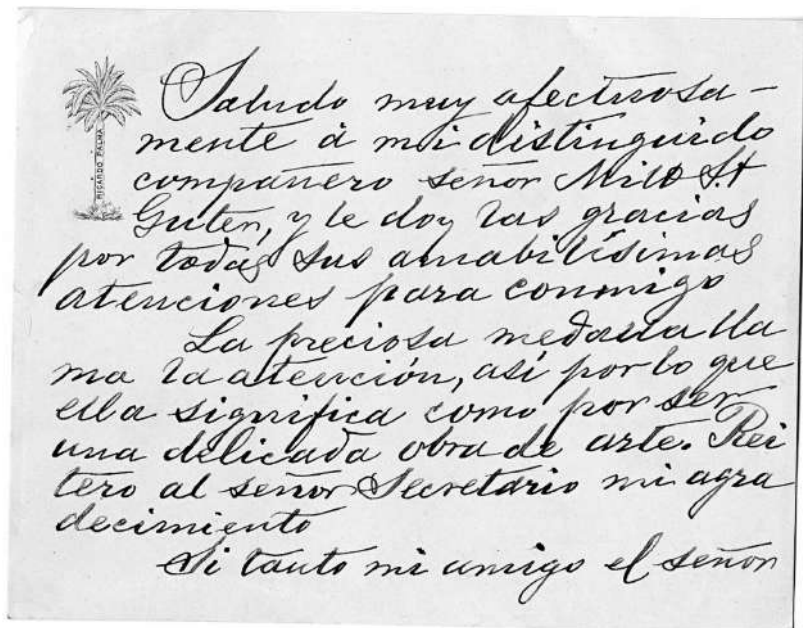 RICARDO PALMA
Saludo muy afectuosa-
mente á mi distinguido
compañero señor
y le doy las gracias
por todas sus amabilísimas
atenciones para conmigo
La preciosa medalla lla
ma la atención, así por lo que
ella significa como por ser
una delicada obra de arte. Rei
tero al señor Secretario mi agra
decimiento
Si tanto mi amigo el señor